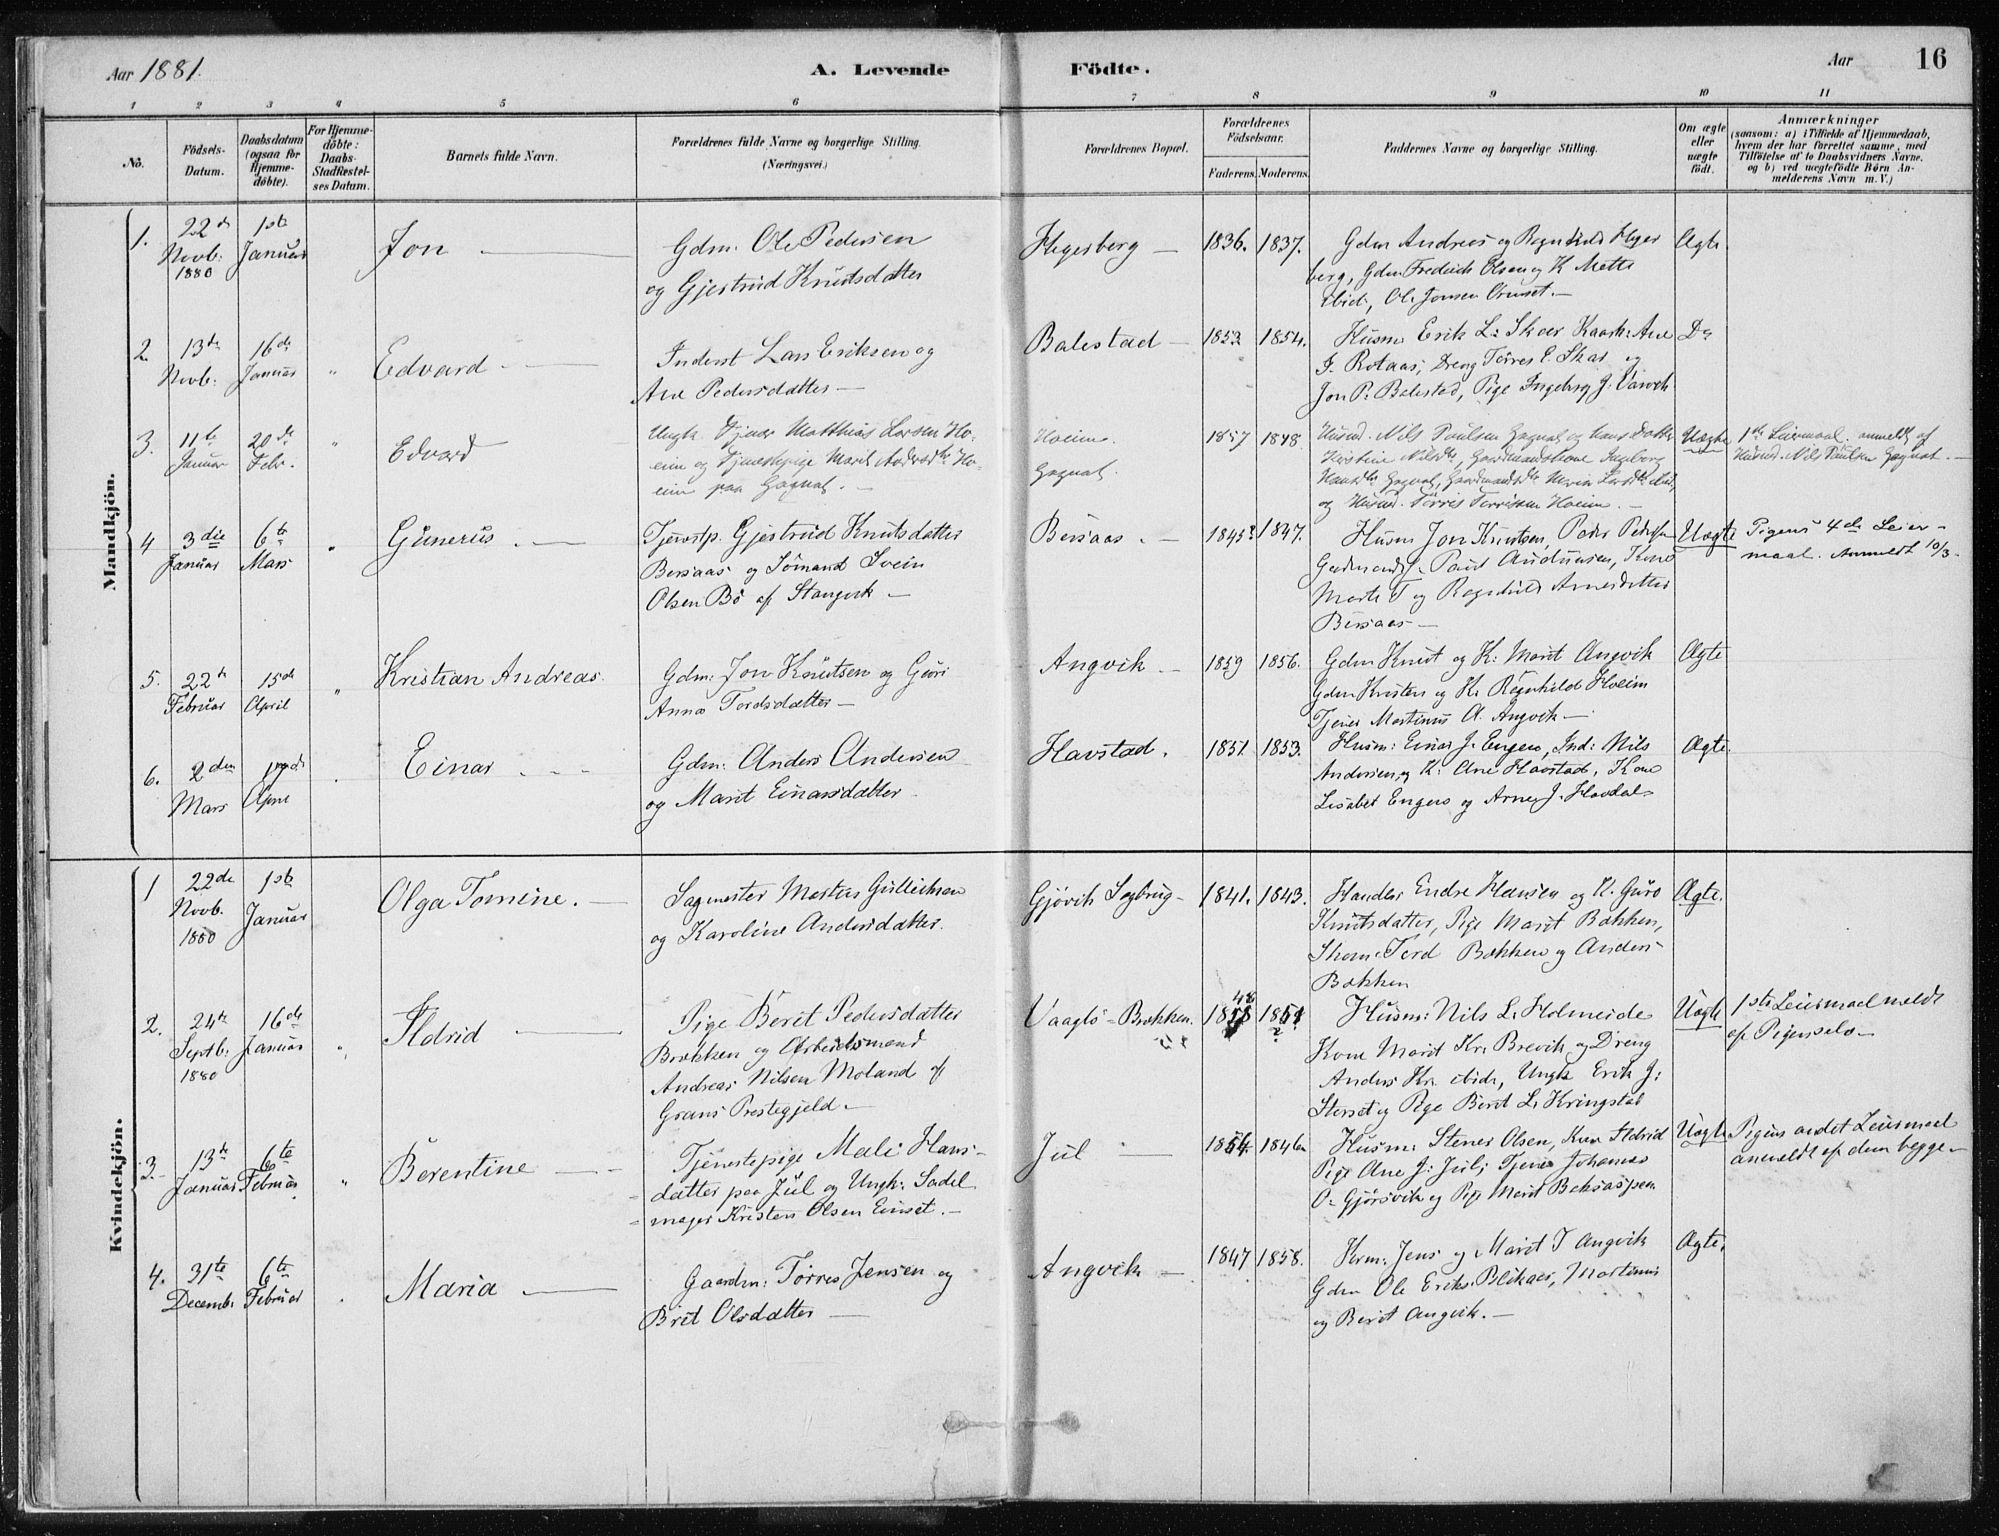 Aar 1881.
A. Levende
Födte.
Aar
16
1 2 3 4 5 6 7 8 9 10 11
No.
Födsels-
Datum.
Daabsdatum
(ogsaa for
Hjemme-
döbte).
For Hjemme-
döbte:
Daabs-
Stadfæstel-
ses Datum.
Barnets fulde Navn.
Forældrenes fulde Navne og borgerlige Stilling.
(Næringsvei.)
Forældrenes Bopæl.
Forældrenes
Födselsaar.
Faderens. Moderens.
Faddernes Navne og borgerlige Stilling.
Om ægte
eller
uægte
födt.
Anmærkninger
(saasom: a) i Tilfælde af Hjemmedaab,
hvem der har forrettet samme, med
Tilföielse af to Daabsvidners Navne,
og b) ved uægtefödte Börn An-
melderens Navn m. V.)
Mandkjön.
1.
22de
Novb:
1880
1ste
Januar
Jon
Gdm: Ole Pedersen
og Gjertrud Knutsdatter
Hegerberg
1836. 1837.
Gdm Andreas og Ragnhild Heger
berg, Gdm Frederik Olsen og K Mette
ibid, Ole Jonsen
Ægte
2.
13de
Novb:
16de
Januar
"
Edvard
Inderst Lars Eriksen og
Ane Pedersdatter
Balestad
1853 1854.
Husm Erik L: Skar Kaarh: Ane
J. Rotaas, Dreng Törres E. Skar og
Jon P: Balestad, Pige Ingeborg J.
Do
3.
11te
Januar
20de
Febr.
"
Edvard
Ungk. Tjener Matthias Larsen Ho-
eim og Tjenestepige Marit Andersdtr Ho-
eim paa Gagnat.
Hoeim.
Gagnat.
1857 1848
Husmd. Nils Paulsen Gagnat og
Kirstine Nilsdtr, Gaardmandskone Ingeborg
Hansdtr Gagnat, Gaardmandsdtr Maria
og Husmd. Törris Torrissen Hoeim.
Uægte
1ste Leiermaal. anmeldt af
Husmd. Nils Paulsen Gagnat.
4
3die
Januar
6te
Mars
"
Gunerus
Tjenestp. Gjertrud Knutsdatter
Bersaas og Sömand Svein
Olsen Bö af Stangvik
Bersaas
1845? 1847.
Husm Jon Knutsen, Peder Pedersen
Gudmunds. Paul Audunsen, Kone
Marte T og Ragnhild Arnesdatter
Bersaas
Uægte
Pigens 4de Leier-
maal. Anmeldt 10/3
5.
22de
Februar
15de
April
"
Kristian Andreas.
Gdm: Jon Knutsen og Guri
Anna Tordsdatter
Angvik
1859 1856.
Gdm Knut og K: Marit Angvik
Gdm Kristen og K. Ragnhild Hoeim
Tjener Martinus A. Angvik
Ægte
6.
2den
Mars
17de
April
Einar
Gdm: Anders Andersen
og Marit Einarsdatter
Havstad.
1851. 1853.
Husm: Einar J. Engen, Ind: Nils
Andersen og K: Ane Havstad, Kone
Lisabet Engen og Arne J. Hovdal
Ægte.
Kvindekjön.
1
22de
Novb.
1880
1ste
Januar
Olga Tomine.
Sagmester Martus Gulliksen
og Karoline Andersdatter.
Gjövik Sagbrug
1841. 1843.
Handler Endre Hansen og K. Guro
Knutsdatter, Pige Marit Bakken,
Skom: Tord Bakken og Anders
Bakken
Ægte.
2.
24de
Septb:
1880
16de
Januar
"
Ildrid
Pige Berit Pedersdatter
Brækken og Arbeidsmand
Andreas Nilsen Moland af
Grans Prestegjeld.
Vaagbö-Brækken.
48
1858 1851
?
Husm: Nils L. Holmeide
Kone Marit Kr. Brevik og Dreng
Anders Kr. ibide, Ungk. Erik J:
Storset og Pige Berit L. Kringstad
Uægte
1ste Leiermaal meldt
af Pigen selv
3.
13de
Januar
6te
Februar
"
Berentine
Tjenestepige Mali Hans-
datter paa Jul og Ungk: Sadel
mager Kristen Olsen Einset.
Jul
1854. 1846
Husm: Stener Olsen, Kone Ildrid
Pige Ane J: Jul; Tjener Johannes
O. Gjörsvik og Pige Marit
Uægte
Pigens andet Leiermaal
anmeldt af dem begge
4.
31te
Decemb:
6te
Februar
Maria
Gaardm: Törres Jensen og
Brit Olsdatter
Angvik
1847 1858.
Kvm: Jens og Marit T Angvik
Gdm Ole Eriks. Blikaas, Martinus
og Berit Angvik.
Ægte.